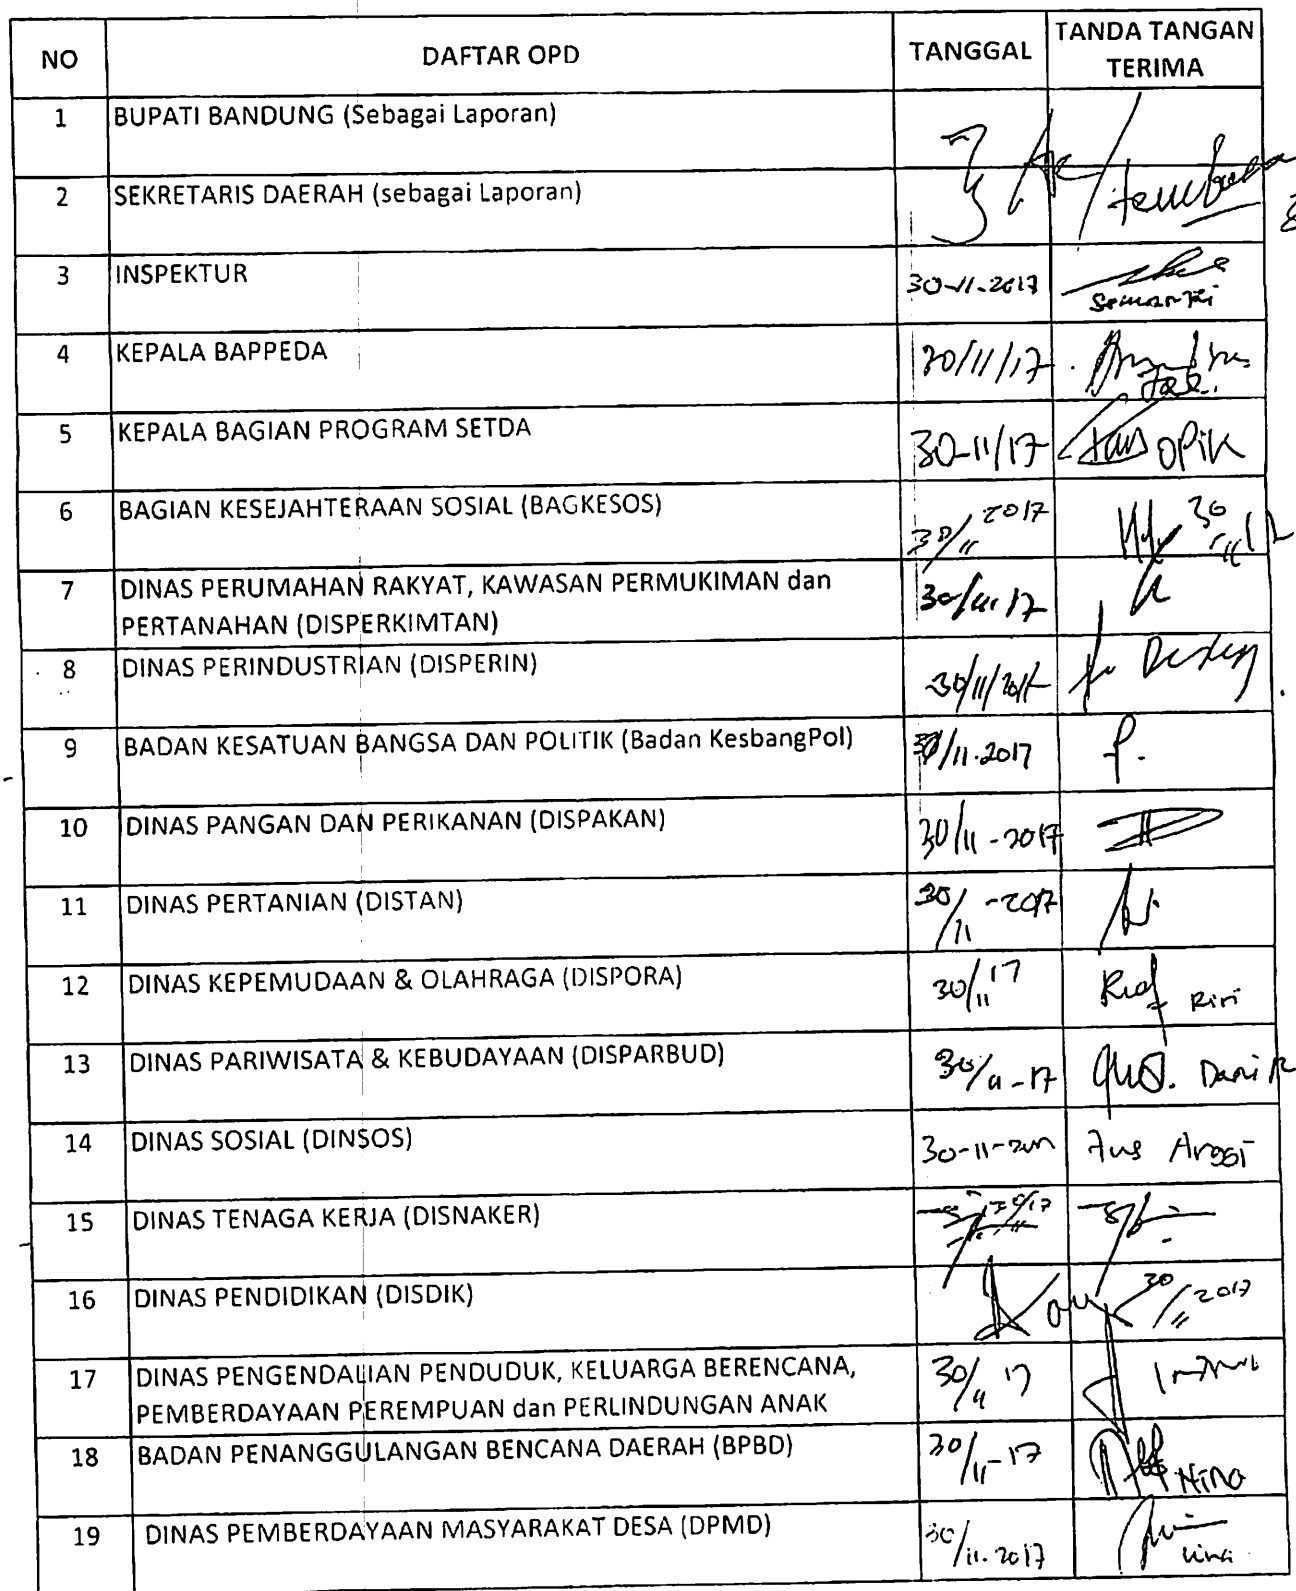 NO DAFTAR OPD TANGGAL TANDA TANGAN TERIMA
1 BUPATI BANDUNG (Sebagai Laporan)
2 SEKRETARIS DAERAH (sebagai Laporan)
3 INSPEKTUR 30-11-2017
4 KEPALA BAPPEDA 30/11/17
5 KEPALA BAGIAN PROGRAM SETDA 30-11/17 OPiK
6 BAGIAN KESEJAHTERAAN SOSIAL (BAGKESOS) 30/11 2017
7 DINAS PERUMAHAN RAKYAT, KAWASAN PERMUKIMAN dan
PERTANAHAN (DISPERKIMTAN) 30/11-17
8 DINAS PERINDUSTRIAN (DISPERIN) 30/11/2017
9 BADAN KESATUAN BANGSA DAN POLITIK (Badan KesbangPol) 30/11.2017
10 DINAS PANGAN DAN PERIKANAN (DISPAKAN) 30/11-2017
11 DINAS PERTANIAN (DISTAN) 30/11-2017
12 DINAS KEPEMUDAAN & OLAHRAGA (DISPORA) 30/11 17 Riri
13 DINAS PARIWISATA & KEBUDAYAAN (DISPARBUD) 30/11-17
14 DINAS SOSIAL (DINSOS) 30-11-2017
15 DINAS TENAGA KERJA (DISNAKER)
16 DINAS PENDIDIKAN (DISDIK) 30/11 2017
17 DINAS PENGENDALIAN PENDUDUK, KELUARGA BERENCANA,
PEMBERDAYAAN PEREMPUAN dan PERLINDUNGAN ANAK 30/11 17
18 BADAN PENANGGULANGAN BENCANA DAERAH (BPBD) 30/11-17 NiNO
19 DINAS PEMBERDAYAAN MASYARAKAT DESA (DPMD) 30/11.2017